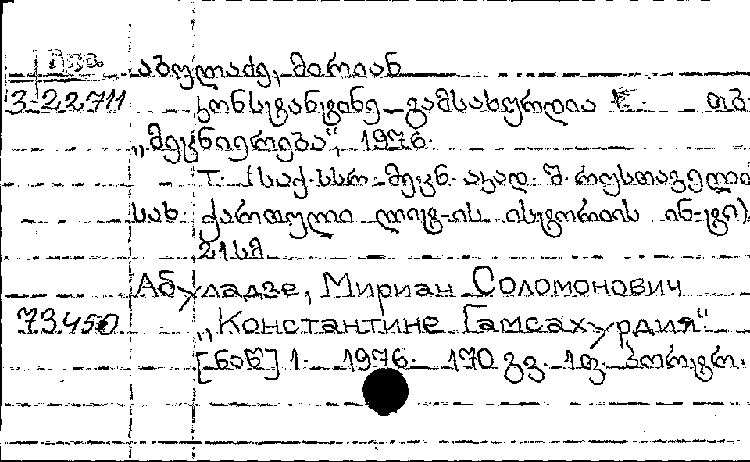 აბულაძე, მირიან
3-22.711 კონსტანტინე გამსახურდია თბ.
„მეცნიერება“, 1976.
T. (საქ. სსრ მეცნ. აკად. შ. რუსთაველის
სახ. ქართული ლიტ-ის ისტორიის ინ-ტი).
21 სმ
Абуладзе, Мириан Соломонович
73.450 „Константине Гамсахурдия“
[ნაწ] 1. 1976. 170 გვ. 1 ფ. პორტრ.